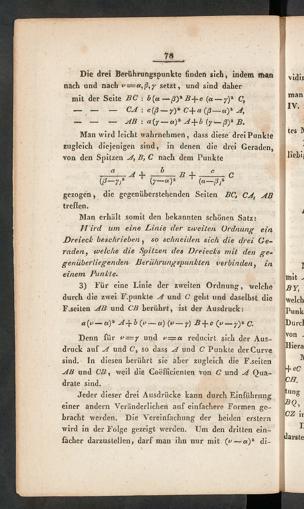 78
Die drei Berührungspunkte finden sich, indem man
nach und nach ν=α,β,γ setzt, und sind daher
mit der Seite BC : b(α—β)² B+c (α—γ)² C,
— — — CA : c(β—γ)² C+a (β—α)² A,
— — — AB : a(γ—α)² A+b (γ—β)² B.
Man wird leicht wahrnehmen, dass diese drei Punkte
zugleich diejenigen sind, in denen die drei Geraden,
von den Spitzen A, B, C nach dem Punkte
a/(β—γ)² A + b/(γ—α)² B + c/(α—β)² C
gezogen, die gegenüberstehenden Seiten BC, CA, AB
treffen.
Man erhält somit den bekannten schönen Satz:
Wird um eine Linie der zweiten Ordnung ein
Dreieck beschrieben, so schneiden sich die drei Ge-
raden, welche die Spitzen des Dreiecks mit den ge-
genüberliegenden Berührungspunkten verbinden, in
einem Punkte.
3) Für eine Linie der zweiten Ordnung, welche
durch die zwei F.punkte A und C geht und daselbst die
F.seiten AB und CB berührt, ist der Ausdruck:
a(ν—α)² A+b (ν—α) (ν—γ) B+c (ν—γ)² C.
Denn für ν=γ und ν=α reducirt sich der Aus-
druck auf A und C, so dass A und C Punkte der Curve
sind. In diesen berührt sie aber zugleich die F.seiten
AB und CB, weil die Coëfficienten von C und A Qua-
drate sind.
Jeder dieser drei Ausdrücke kann durch Einführung
einer andern Veränderlichen auf einfachere Formen ge-
bracht werden. Die Vereinfachung der beiden erstern
wird in der Folge gezeigt werden. Um den dritten ein-
facher darzustellen, darf man ihn nur mit (ν—α)² di-
vidir
man
IV.
tes
liebi
mit
BY,
welch
Punk
Durch
von
Hiera
+cC
CB,
tung
BQ,
CZ
darste